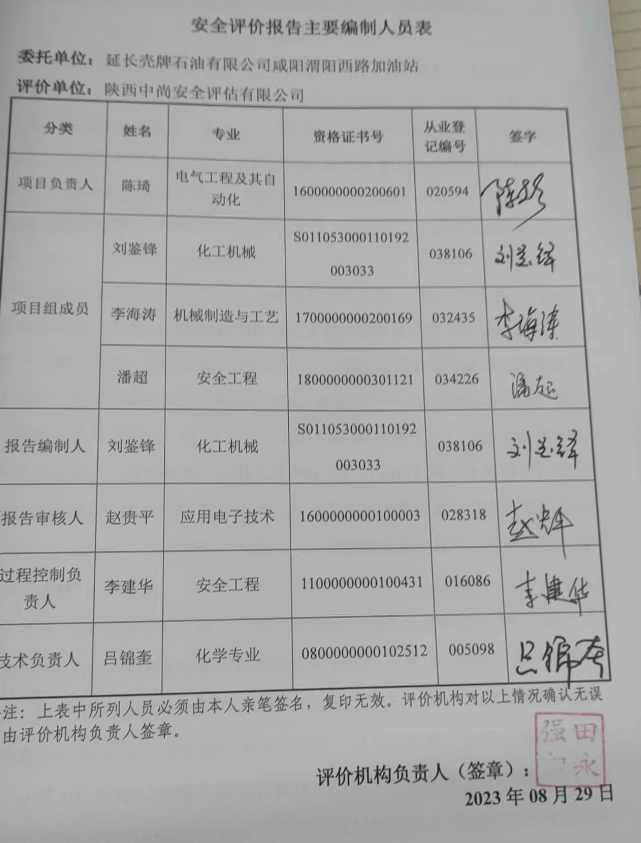 安全评价报告主要编制人员表
委托单位：延长壳牌石油有限公司咸阳渭阳西路加油站
评价单位：陕西中尚安全评估有限公司
分类 姓名 专业 资格证书号 从业登记编号 签字
项目负责人 陈琦 电气工程及其自动化 1600000000200601 020594 陈琦
项目组成员 刘鉴锋 化工机械 S011053000110192003033 038106 刘鉴锋
李海涛 机械制造与工艺 1700000000200169 032435 李海涛
潘超 安全工程 1800000000301121 034226 潘超
报告编制人 刘鉴锋 化工机械 S011053000110192003033 038106 刘鉴锋
报告审核人 赵贵平 应用电子技术 1600000000100003 028318
过程控制负责人 李建华 安全工程 1100000000100431 016086 李建华
技术负责人 吕锦奎 化学专业 0800000000102512 005098 吕锦奎
注：上表中所列人员必须由本人亲笔签名，复印无效。评价机构对以上情况确认无误
由评价机构负责人签章。
评价机构负责人（签章）：
田永强印
2023年08月29日